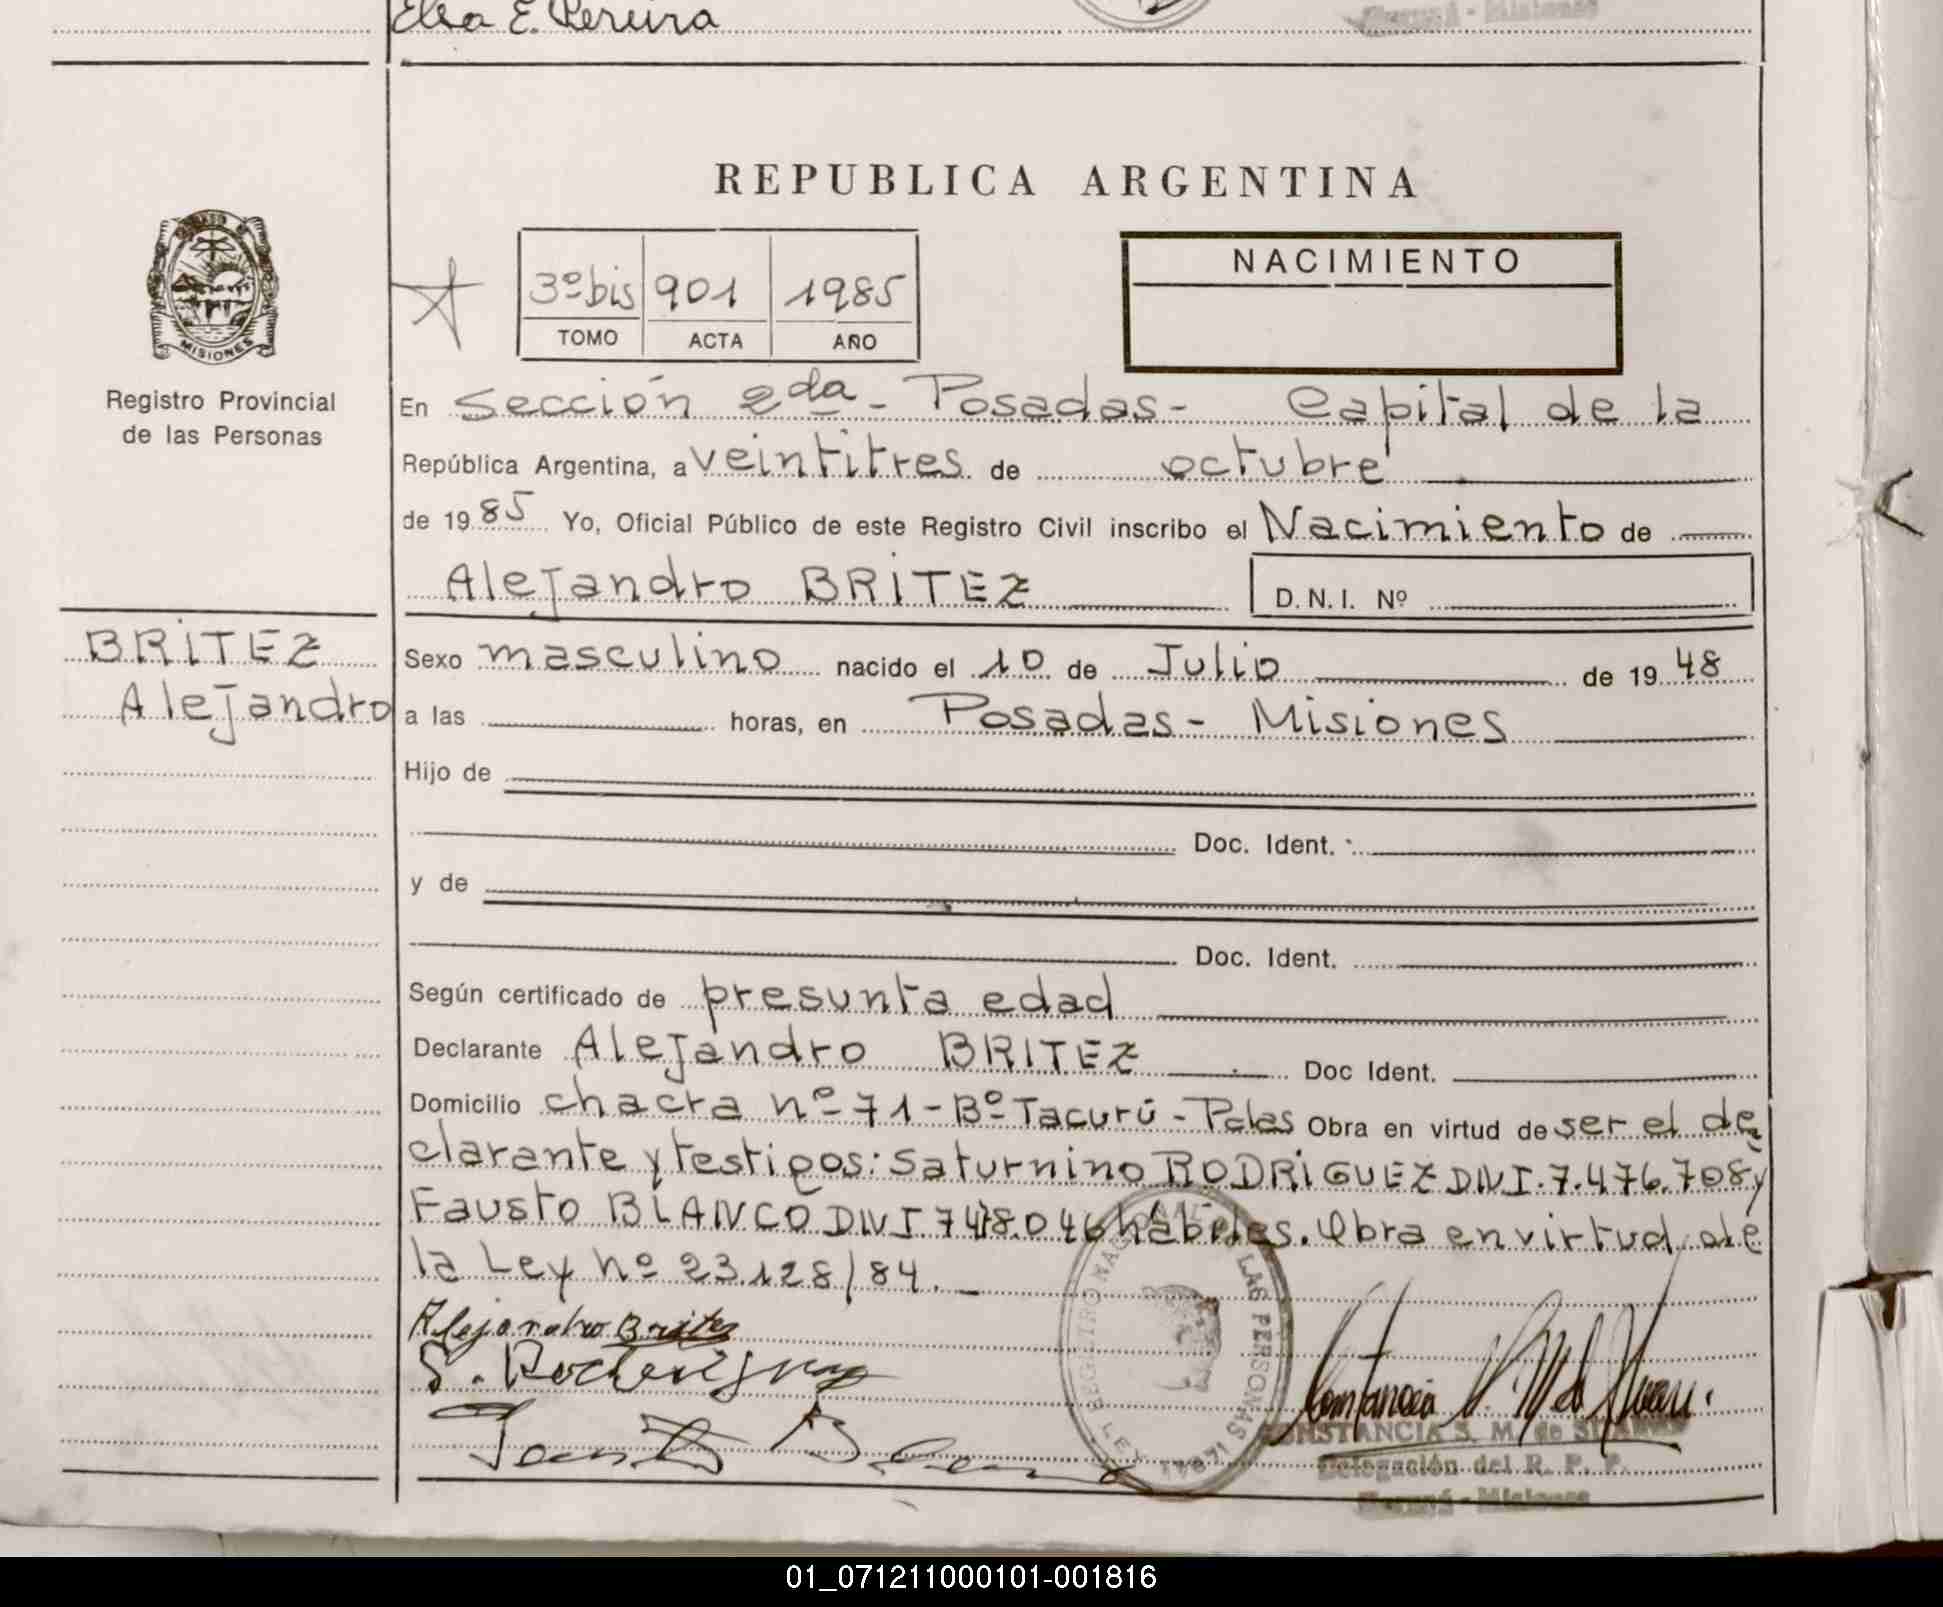 Elsa E. Pereira
REPUBLICA ARGENTINA
MISIONES
Registro Provincial
de las Personas
3º bis 901 1985
TOMO ACTA AÑO
NACIMIENTO
En Sección 2da - Posadas - Capital de la
República Argentina, a veintitres de octubre
de 1985 Yo, Oficial Público de este Registro Civil inscribo el Nacimiento de
Alejandro BRITEZ D.N.I. Nº
BRITEZ
Alejandro
Sexo masculino nacido el 10 de Julio de 1948
a las horas, en Posadas - Misiones
Hijo de
Doc. Ident.
y de
Doc. Ident.
Según certificado de presunta edad
Declarante Alejandro BRITEZ Doc Ident.
Domicilio chacra nº 71 - Bº Tacurú - Pdas Obra en virtud de ser el de
clarante y testigos: Saturnino RODRIGUEZ DNI. 7.476.708 y
Fausto BLANCO DNI 748.046 hábiles. Obra en virtud de
la Ley nº 23.128/84.
Alejandro Britez
REGISTRO NACIONAL DE LAS PERSONAS
CONSTANCIA S. M. de
Delegación del R. P. P.
- Misiones
01_071211000101-001816